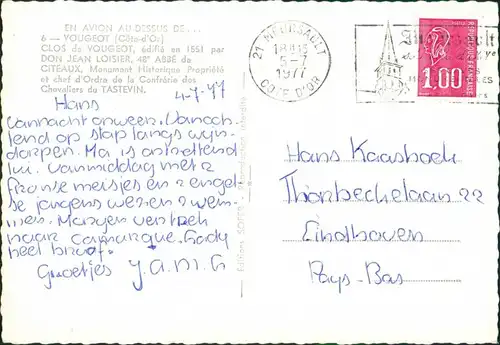 EN AVION AU-DESSUS DE...
6 — VOUGEOT (Côte-d'Or)
CLOS de VOUGEOT, édifié en 1551 par
DON JEAN LOISIER, 48e ABBÉ de
CITEAUX, Monument Historique Propriété
et chef d'Ordre de la Confrérie des
Chevaliers du TASTEVIN.
4-7.77
Hans
vannacht onweer. Vanoch-
tend op stap langs wijn-
dorpen. Ma is ontzettend
lui. Vanmiddag met 2
franse meisjes en 2 engel-
se jongens wezen zwem-
men. Morgen vertrek
naar Camarque. Gady
heel braaf.
Groetjes
21 MEURSAULT
18H15
5-7
1977
COTE D'OR
Meursault
1,00
Hans Kaasboek
Thorbeckelaan 22
Eindhoven
Pays-Bas